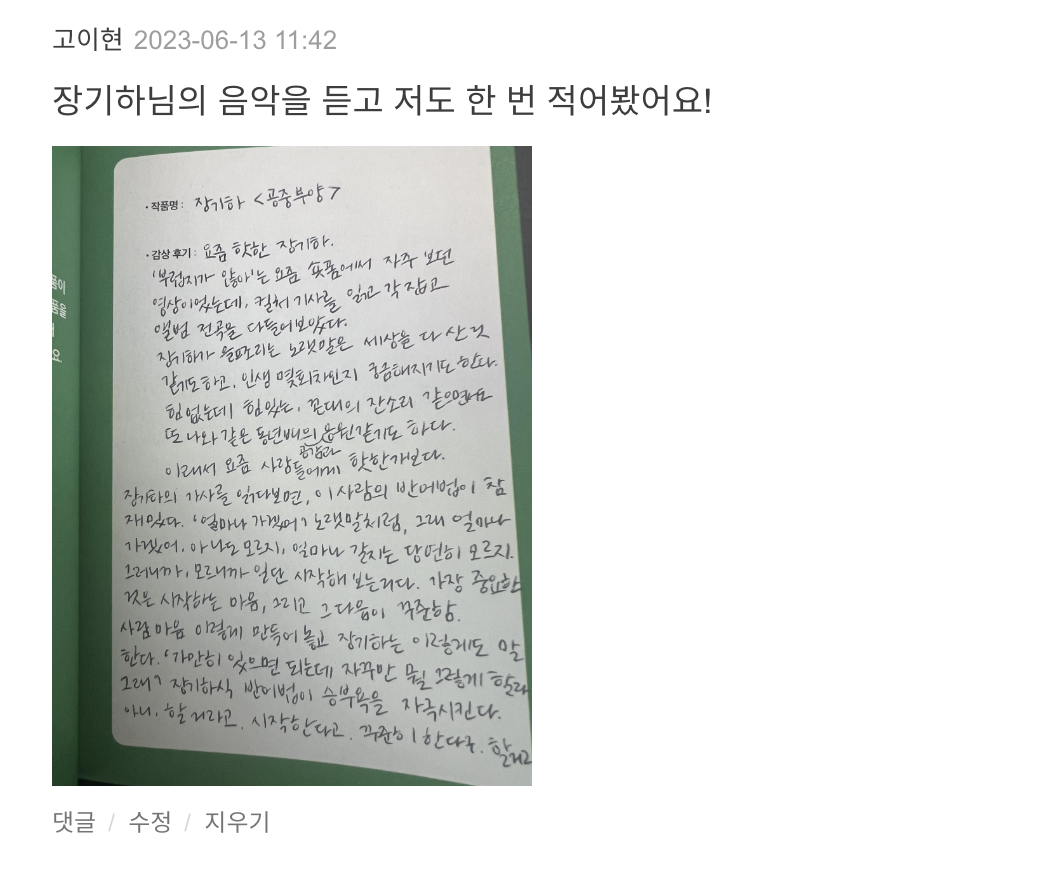 고이현 2023-06-13 11:42
장기하님의 음악을 듣고 저도 한 번 적어봤어요!
• 작품명 : 장기하 <공중부양>
• 감상 후기 : 요즘 핫한 장기하.
'부럽지가 않아'는 요즘 숏폼에서 자주 보던
영상이었는데, 컬처 기사를 읽고 각 잡고
앨범 전곡을 다 들어보았다.
장기하가 읊조리는 노랫말은 세상을 다 산 것
같기도 하고, 인생 몇회차인지 궁금해지기도 한다.
힘없는데 힘있는, 꼰대의 잔소리 같으면서도
또 나와 같은 동년배의 응원같기도 하다.
공감과
이래서 요즘 사람들에게 핫한가보다.
장기하의 가사를 읽다보면, 이 사람의 반어법이 참
재밌다. '얼마나 가겠어' 노랫말처럼, 그래 얼마나
가겠어, 아니도 모르지, 얼마나 갈지는 당연히 모르지.
그러니까, 모르니까 일단 시작해 보는거다. 가장 중요한
것은 시작하는 마음, 그리고 그 다음이 꾸준함.
사람 마음 이렇게 만들어 놓고 장기하는 이렇게도 말
한다. '가만히 있으면 되는데 자꾸만 뭘 그렇게 할라
그래' 장기하식 반어법이 승부욕을 자극시킨다.
아니, 할 거라고. 시작한다고. 꾸준히 한다구. 할거고
품이
품을
요.
댓글 / 수정 / 지우기